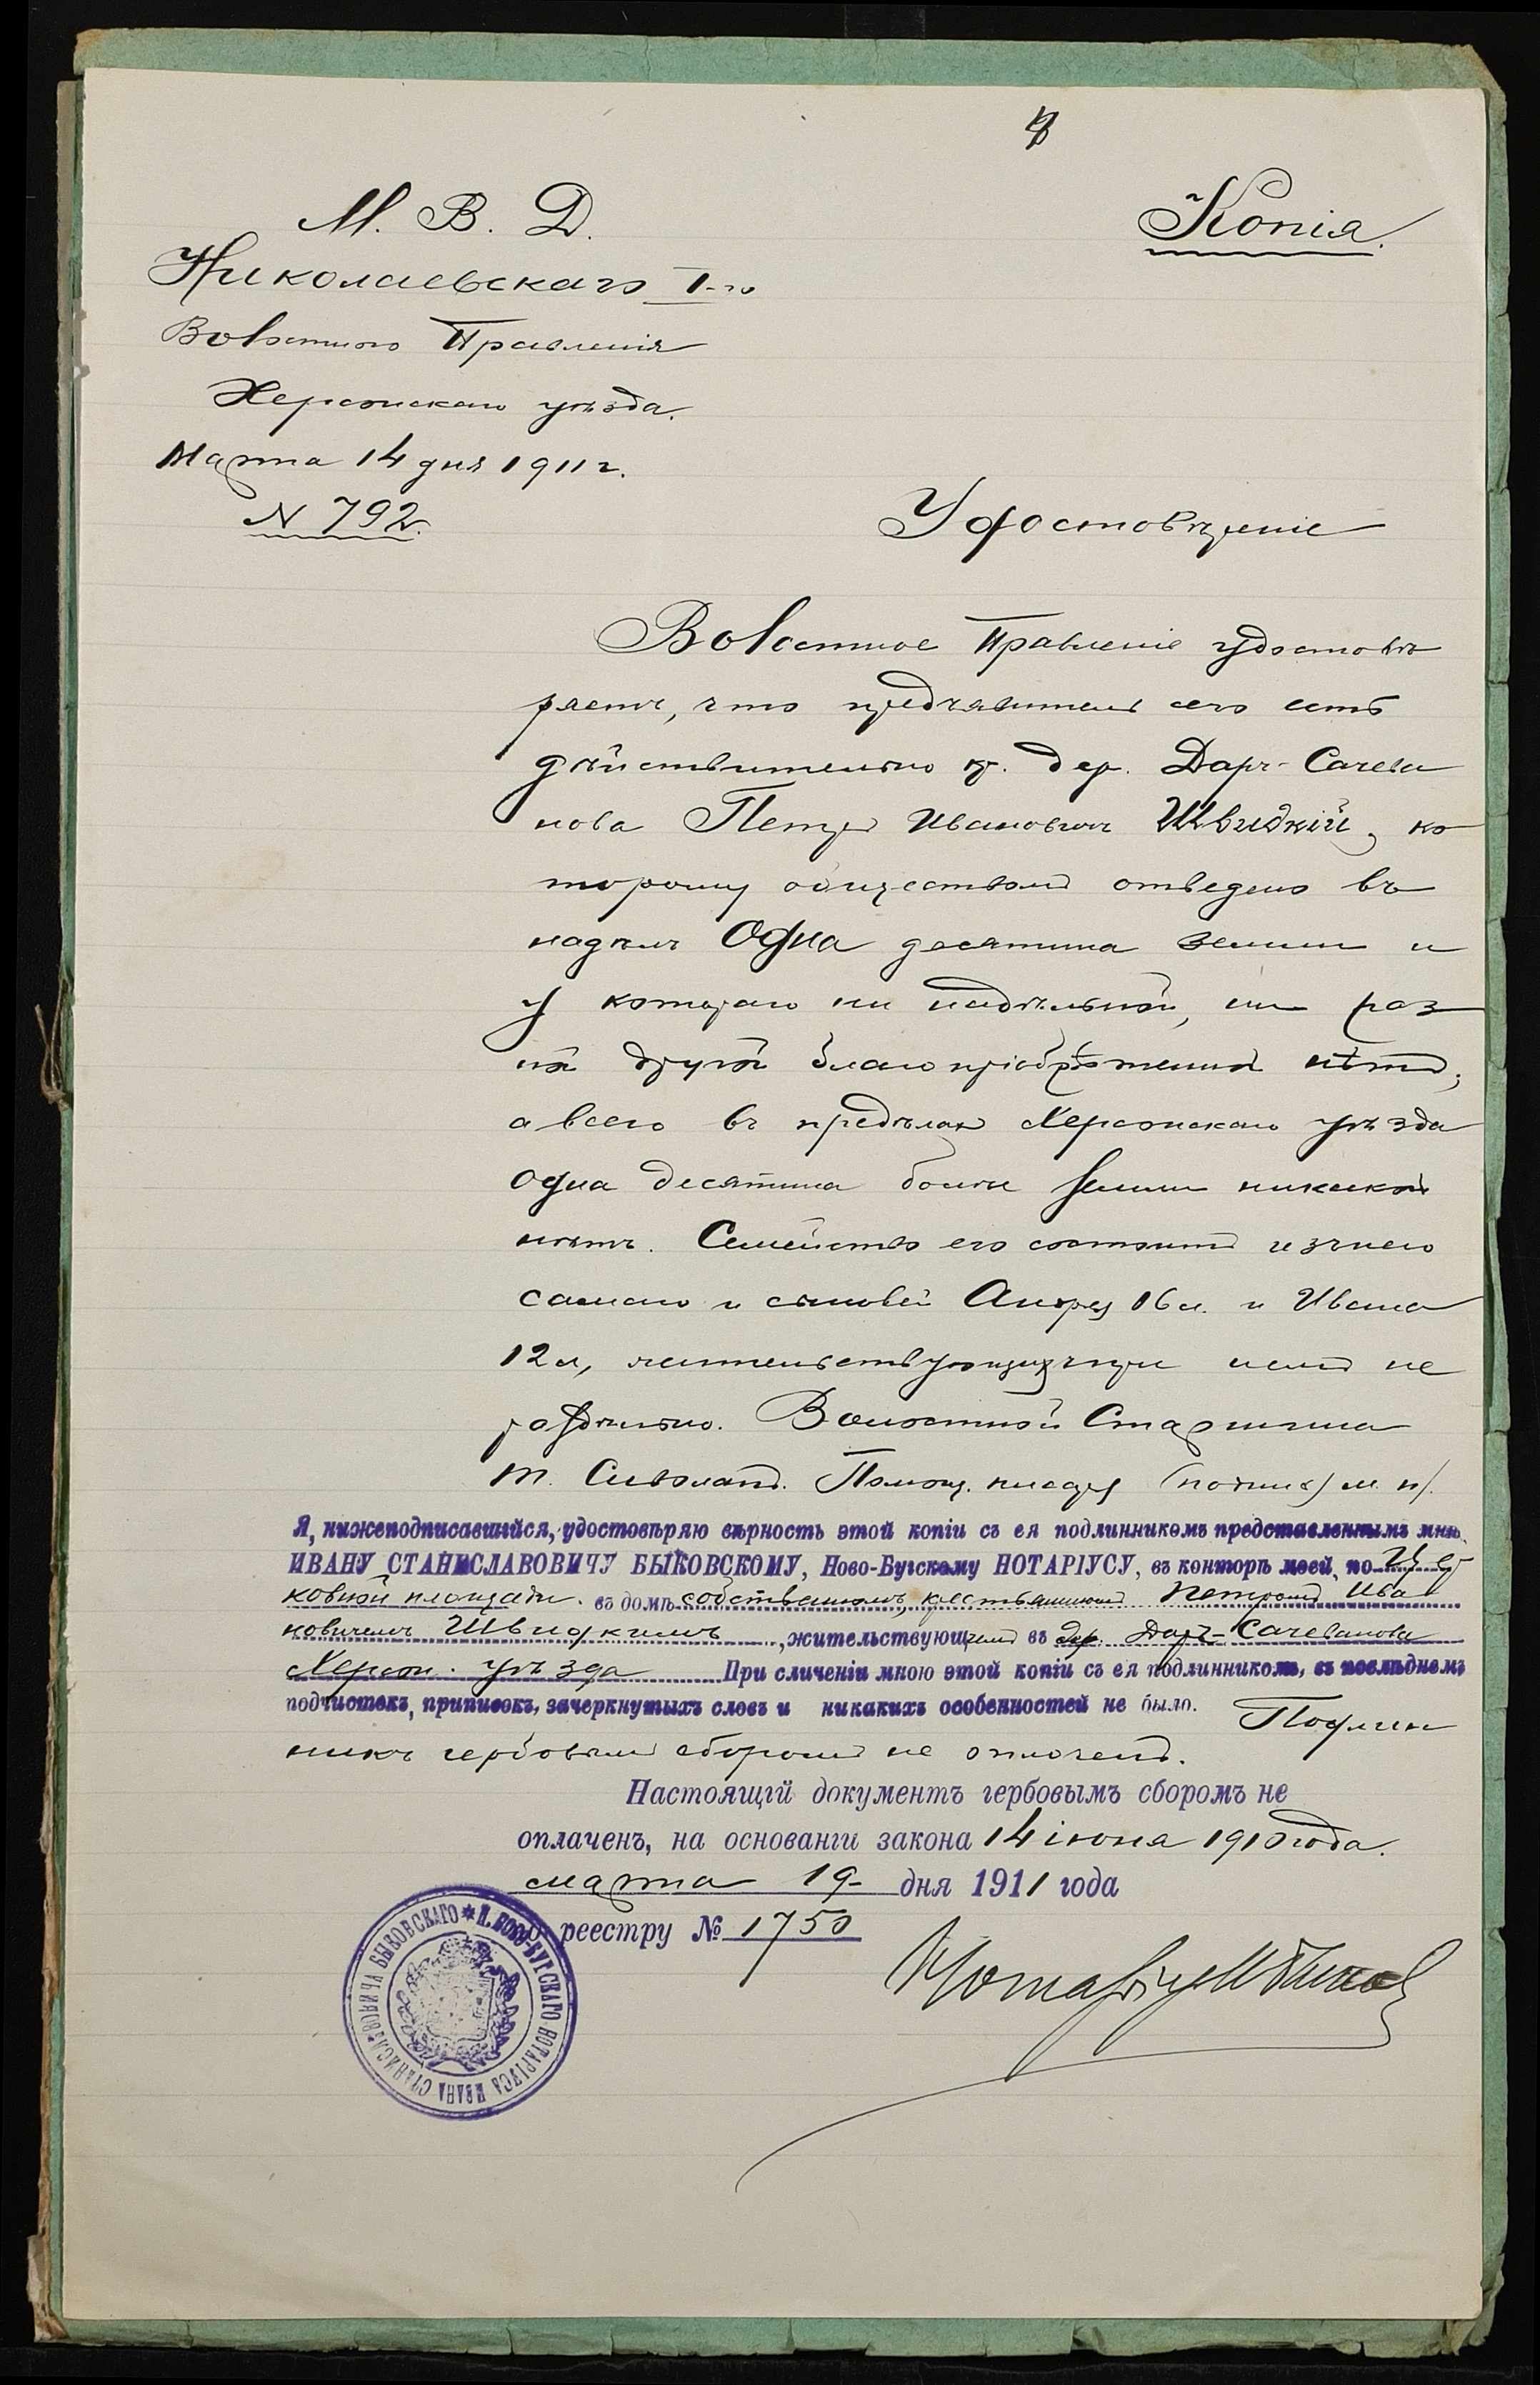 Копія.
М. В. Д.
Николаевскаго I-го
Волостного Правленія
Херсонскаго уѣзда.
Марта 14 дня 1911 г.
N 792.
Удостовѣреніе
Волостное Правленіе удостовѣ
ряетъ, что предъявитель сего есть
дѣйствительно кр. дер. Даръ-Сачева
нова Петръ Ивановичъ Швидкій, ко
торому обществомъ отведено въ
надѣлъ Одна десятина земли и
у котораго ни надѣльной, ни
другой благопріобрѣтенной нѣтъ;
а всего въ предѣлах Херсонскаго уѣзда
одна десятина болѣе земли никакой
нѣтъ. Семейство его состоитъ изъ него
самаго и сыновей Андрея 16 л. и Ивана
12 л, жительствующихъ при немъ не
раздѣльно. Волостной Старшина
Т. Сиволапъ. Помощ. писаря (подпись) м. п.
Я, нижеподписавшійся, удостовѣряю вѣрность этой копіи съ ея подлинникомъ представленнымъ мнѣ
ИВАНУ СТАНИСЛАВОВИЧУ БЫКОВСКОМУ, Ново-Бугскому НОТАРІУСУ, въ конторѣ моей, по Цер
ковной площади. въ домѣ собственномъ, крестьяниномъ Петромъ Ива
новичемъ Швидкимъ, жительствующимъ въ дер. Даръ-Сачеванова
Херсон. уѣзда При сличеніи мною этой копіи съ ея подлинникомъ, въ послѣднемъ
подчистокъ, приписокъ, зачеркнутыхъ словъ и никакихъ особенностей не было. Подлин
никъ гербовымъ сборомъ не оплоченъ.
Настоящій документъ гербовымъ сборомъ не
оплаченъ, на основаніи закона 14 іюня 1910 года.
марта 19 дня 1911 года
По реестру № 1750
Нотаріусъ
Н. НОВО-БУГСКАГО НОТАРІУСА ИВАНА СТАНИСЛАВОВИЧА БЫКОВСКАГО